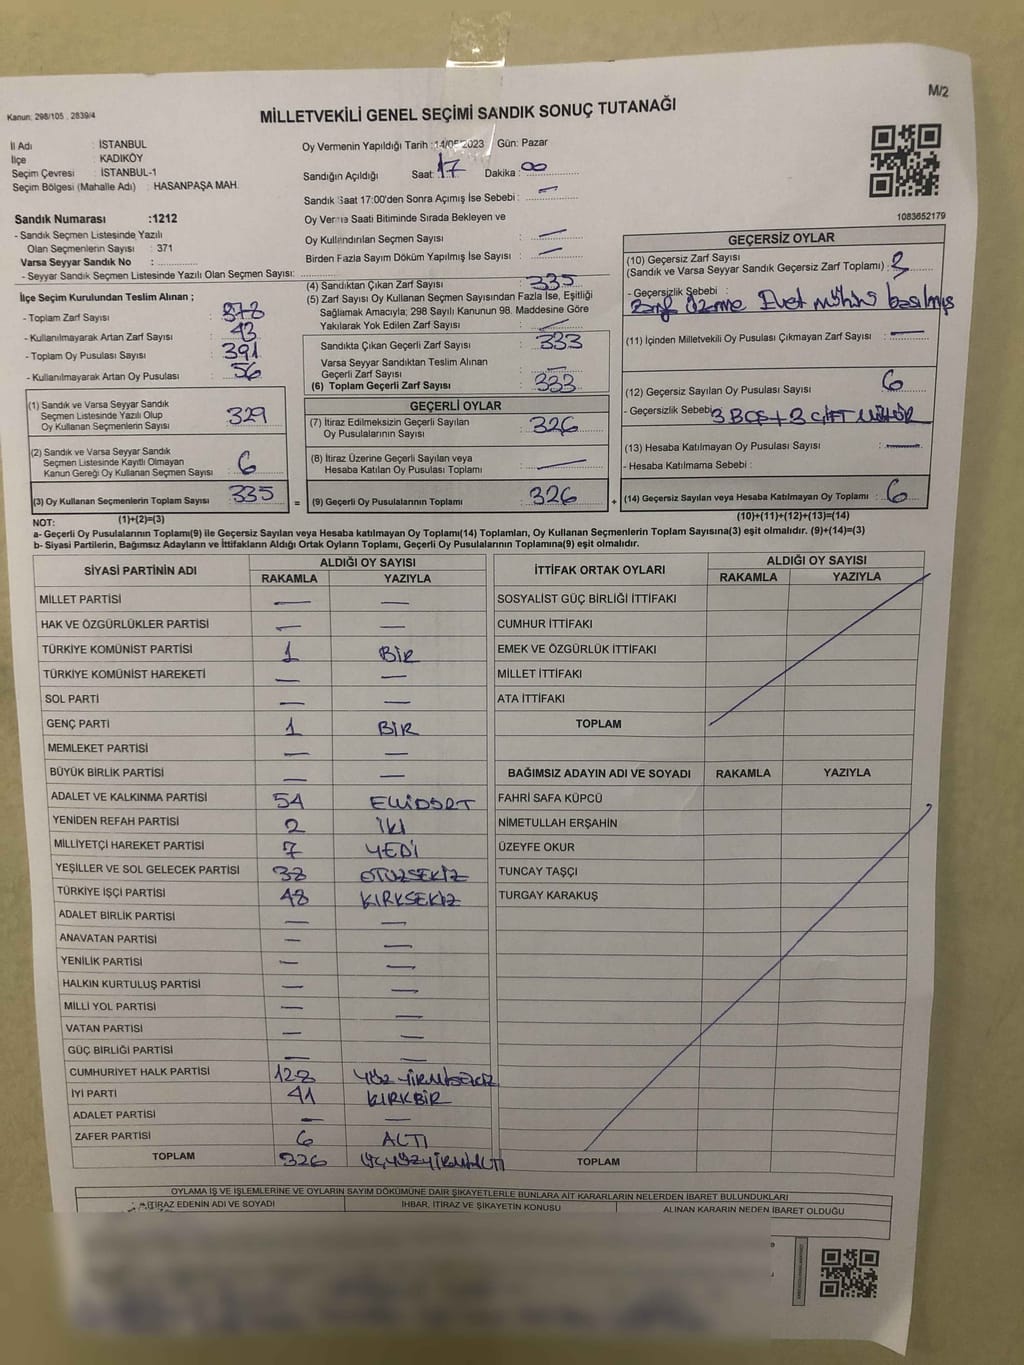 M/2
Kanun: 298/105 , 2839/4
MİLLETVEKİLİ GENEL SEÇİMİ SANDIK SONUÇ TUTANAĞI
İl Adı : İSTANBUL
İlçe : KADIKÖY
Seçim Çevresi : İSTANBUL-1
Seçim Bölgesi (Mahalle Adı) : HASANPAŞA MAH.
Sandık Numarası :1212
- Sandık Seçmen Listesinde Yazılı
Olan Seçmenlerin Sayısı : 371
Varsa Seyyar Sandık No :
- Seyyar Sandık Seçmen Listesinde Yazılı Olan Seçmen Sayısı:
Oy Vermenin Yapıldığı Tarih :14/05/2023 Gün: Pazar
Sandığın Açıldığı Saat: 17 Dakika : 00
Sandık Saat 17:00'den Sonra Açılmış İse Sebebi : —
Oy Verme Saati Bitiminde Sırada Bekleyen ve
Oy Kullandırılan Seçmen Sayısı : —
Birden Fazla Sayım Döküm Yapılmış İse Sayısı : —
1083652179
İlçe Seçim Kurulundan Teslim Alınan ;
- Toplam Zarf Sayısı : 378
- Kullanılmayarak Artan Zarf Sayısı : 43
- Toplam Oy Pusulası Sayısı : 391
- Kullanılmayarak Artan Oy Pusulası : 56
(1) Sandık ve Varsa Seyyar Sandık
Seçmen Listesinde Yazılı Olup
Oy Kullanan Seçmenlerin Sayısı : 329
(2) Sandık ve Varsa Seyyar Sandık
Seçmen Listesinde Kayıtlı Olmayan
Kanun Gereği Oy Kullanan Seçmen Sayısı : 6
(3) Oy Kullanan Seçmenlerin Toplam Sayısı : 335
(1)+(2)=(3)
(4) Sandıktan Çıkan Zarf Sayısı : 335
(5) Zarf Sayısı Oy Kullanan Seçmen Sayısından Fazla İse, Eşitliği
Sağlamak Amacıyla; 298 Sayılı Kanunun 98. Maddesine Göre
Yakılarak Yok Edilen Zarf Sayısı : —
Sandıkta Çıkan Geçerli Zarf Sayısı : 333
Varsa Seyyar Sandıktan Teslim Alınan
Geçerli Zarf Sayısı : —
(6) Toplam Geçerli Zarf Sayısı : 333
GEÇERLİ OYLAR
(7) İtiraz Edilmeksizin Geçerli Sayılan
Oy Pusulalarının Sayısı : 326
(8) İtiraz Üzerine Geçerli Sayılan veya
Hesaba Katılan Oy Pusulası Toplamı : —
= (9) Geçerli Oy Pusulalarının Toplamı : 326 +
GEÇERSİZ OYLAR
(10) Geçersiz Zarf Sayısı
(Sandık ve Varsa Seyyar Sandık Geçersiz Zarf Toplamı) : 3
- Geçersizlik Sebebi :
Zarf Üzerine Evet mührü basılmış
(11) İçinden Milletvekili Oy Pusulası Çıkmayan Zarf Sayısı : —
(12) Geçersiz Sayılan Oy Pusulası Sayısı : 6
- Geçersizlik Sebebi: 3 BOŞ + 3 ÇİFT MÜHÜR
(13) Hesaba Katılmayan Oy Pusulası Sayısı : —
- Hesaba Katılmama Sebebi :
(14) Geçersiz Sayılan veya Hesaba Katılmayan Oy Toplamı : 6
(10)+(11)+(12)+(13)=(14)
NOT:
a- Geçerli Oy Pusulalarının Toplamı(9) ile Geçersiz Sayılan veya Hesaba katılmayan Oy Toplamı(14) Toplamları, Oy Kullanan Seçmenlerin Toplam Sayısına(3) eşit olmalıdır. (9)+(14)=(3)
b- Siyasi Partilerin, Bağımsız Adayların ve İttifakların Aldığı Ortak Oyların Toplamı, Geçerli Oy Pusulalarının Toplamına(9) eşit olmalıdır.
SİYASİ PARTİNİN ADI ALDIĞI OY SAYISI
RAKAMLA YAZIYLA
MİLLET PARTİSİ — —
HAK VE ÖZGÜRLÜKLER PARTİSİ — —
TÜRKİYE KOMÜNİST PARTİSİ 1 BİR
TÜRKİYE KOMÜNİST HAREKETİ — —
SOL PARTİ — —
GENÇ PARTİ 1 BİR
MEMLEKET PARTİSİ — —
BÜYÜK BİRLİK PARTİSİ — —
ADALET VE KALKINMA PARTİSİ 54 ELLİDÖRT
YENİDEN REFAH PARTİSİ 2 İKİ
MİLLİYETÇİ HAREKET PARTİSİ 7 YEDİ
YEŞİLLER VE SOL GELECEK PARTİSİ 38 OTUZSEKİZ
TÜRKİYE İŞÇİ PARTİSİ 48 KIRKSEKİZ
ADALET BİRLİK PARTİSİ — —
ANAVATAN PARTİSİ — —
YENİLİK PARTİSİ — —
HALKIN KURTULUŞ PARTİSİ — —
MİLLİ YOL PARTİSİ — —
VATAN PARTİSİ — —
GÜÇ BİRLİĞİ PARTİSİ — —
CUMHURİYET HALK PARTİSİ 128 YÜZ YİRMİSEKİZ
İYİ PARTİ 41 KIRKBİR
ADALET PARTİSİ — —
ZAFER PARTİSİ 6 ALTI
TOPLAM 326 ÜÇYÜZYİRMİALTI
İTTİFAK ORTAK OYLARI ALDIĞI OY SAYISI
RAKAMLA YAZIYLA
SOSYALİST GÜÇ BİRLİĞİ İTTİFAKI
CUMHUR İTTİFAKI
EMEK VE ÖZGÜRLÜK İTTİFAKI
MİLLET İTTİFAKI
ATA İTTİFAKI
TOPLAM
BAĞIMSIZ ADAYIN ADI VE SOYADI RAKAMLA YAZIYLA
FAHRİ SAFA KÜPCÜ
NİMETULLAH ERŞAHİN
ÜZEYFE OKUR
TUNCAY TAŞÇI
TURGAY KARAKUŞ
TOPLAM
OYLAMA İŞ VE İŞLEMLERİNE VE OYLARIN SAYIM DÖKÜMÜNE DAİR ŞİKAYETLERLE BUNLARA AİT KARARLARIN NELERDEN İBARET BULUNDUKLARI
İTİRAZ EDENİN ADI VE SOYADI İHBAR, İTİRAZ VE ŞİKAYETİN KONUSU ALINAN KARARIN NEDEN İBARET OLDUĞU